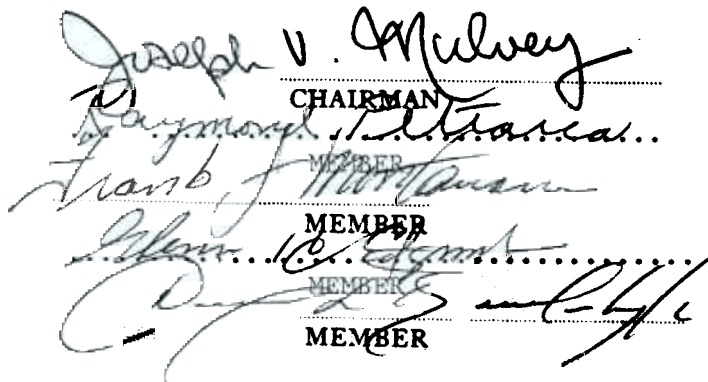 Joseph V. Mulvey
CHAIRMAN
Raymond Petrarca
MEMBER
Frank J. Montanaro
MEMBER
Glenn
MEMBER
MEMBER